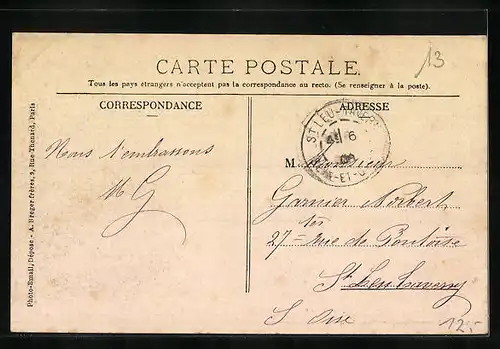 13
CARTE POSTALE.
Tous les pays étrangers n'acceptent pas la correspondance au recto. (Se renseigner à la poste).
CORRESPONDANCE
ADRESSE
Nous t'embrassons
M G
Photo-Email, Déposé - A. Breger frères, 9, Rue Thénard, Paris
ST LEU-TAVERNY
6
SEINE-ET-O
M. Monsieur
Garnier Norbert
27 ter rue de Pontoise
St Leu Taverny
S. Oise
125-